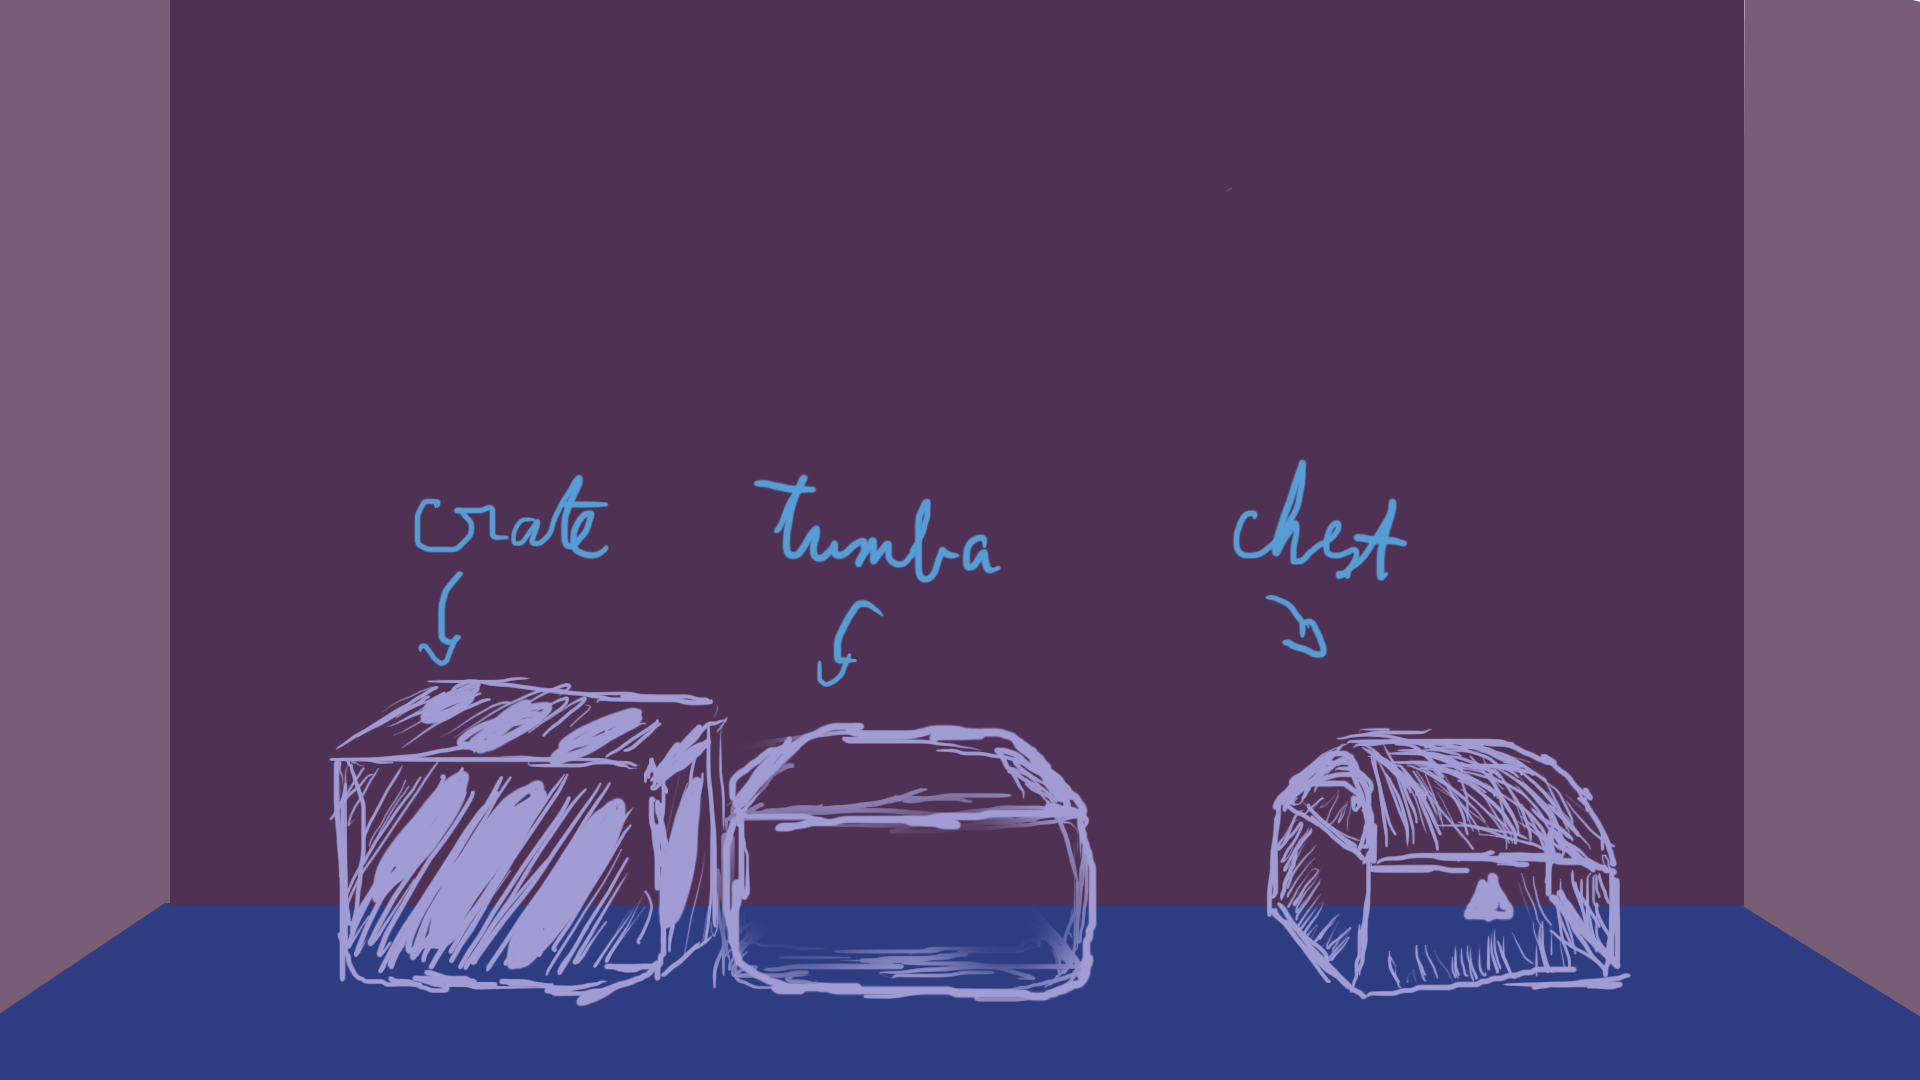 crate
Tumba
chest